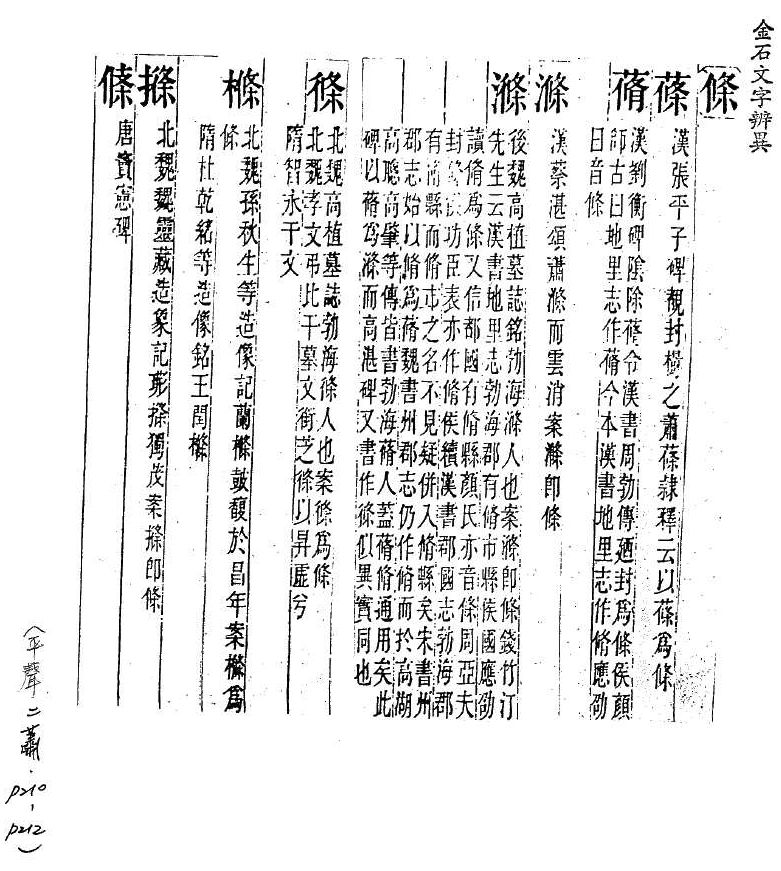 金石文字辨異
條
蓧
漢張平子碑覩封樹之蕭蓧隸釋云以蓧為條
蓨
漢劉衡碑陰除蓨令漢書周勃傳廼封為條侯顏
師古曰地里志作蓨今本漢書地里志作脩應劭
曰音條
滌
漢蔡湛頌肅滌而雲消案滌即條
滌
後魏高植墓誌銘勃海滌人也案滌即條錢竹汀
先生云漢書地里志勃海郡有脩市縣侯國應劭
讀脩為條又信都國有脩縣顏氏亦音條周亞夫
封 功臣表亦作脩侯續漢書郡國志勃海郡
有脩縣而脩市之名不見疑併入脩縣矣宋書州
郡志始以脩為蓨魏書州郡志仍作脩而於高湖
高聰高肇等傳皆書勃海蓨人蓋蓨脩通用矣此
碑以蓨為滌而高湛碑又書作條似異實同也
北魏高植墓誌勃海條人也案條為條
北魏孝文弔比干墓文銜芝條以昇虛兮
隋智永千文
樤
北魏孫秋生等造像記蘭樤鼓馥於昌年案樤為
條
隋杜乾緒等造像銘王閏樤
北魏魏靈藏造象記彫 獨茂案 即條
唐竇憲碑
(平聲二蕭．p210-p212)